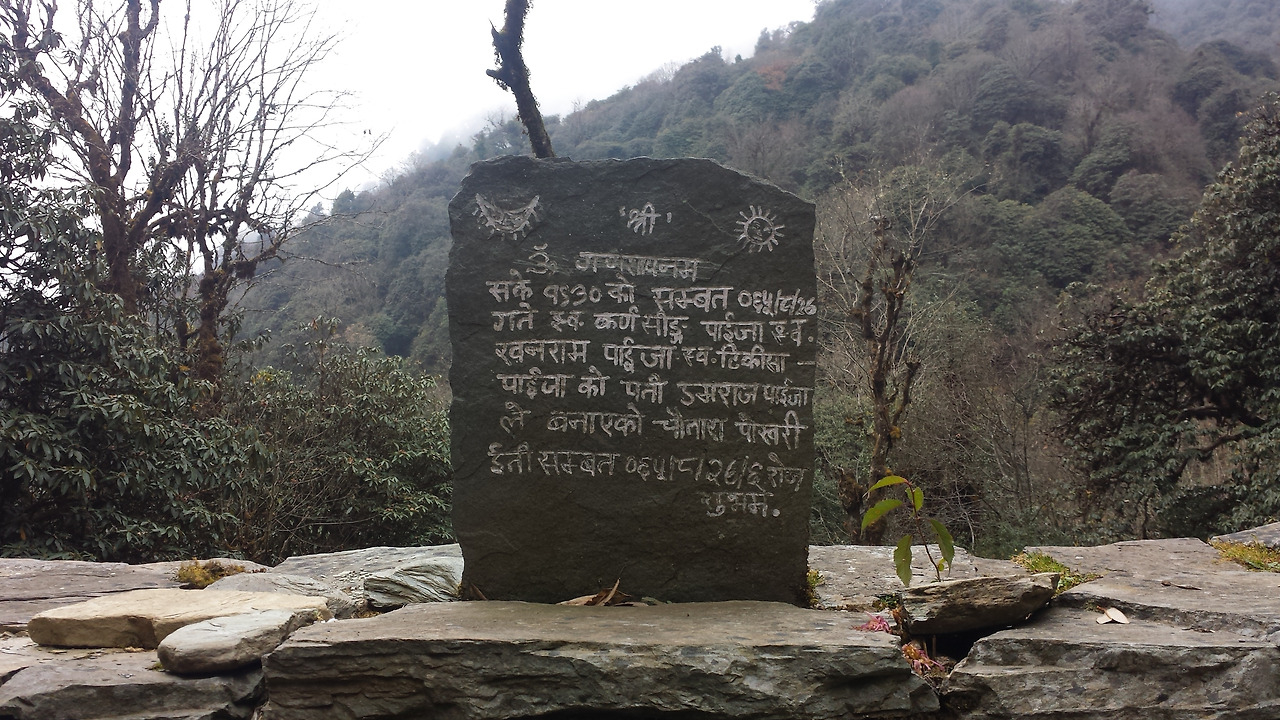 'श्री'
ॐ
सके १९३० को सम्बत ०६५/८/२६
गते स्व. कर्ण सीङ्ग पाईजा स्व.
रवनराम पाईजा स्व. टिकीसा -
पाईजा को पती डमराज पाईजा
ले बनाएको चौतारा पोखरी
ईती सम्बत ०६५/८/२६/६ रोज
शुभमे.